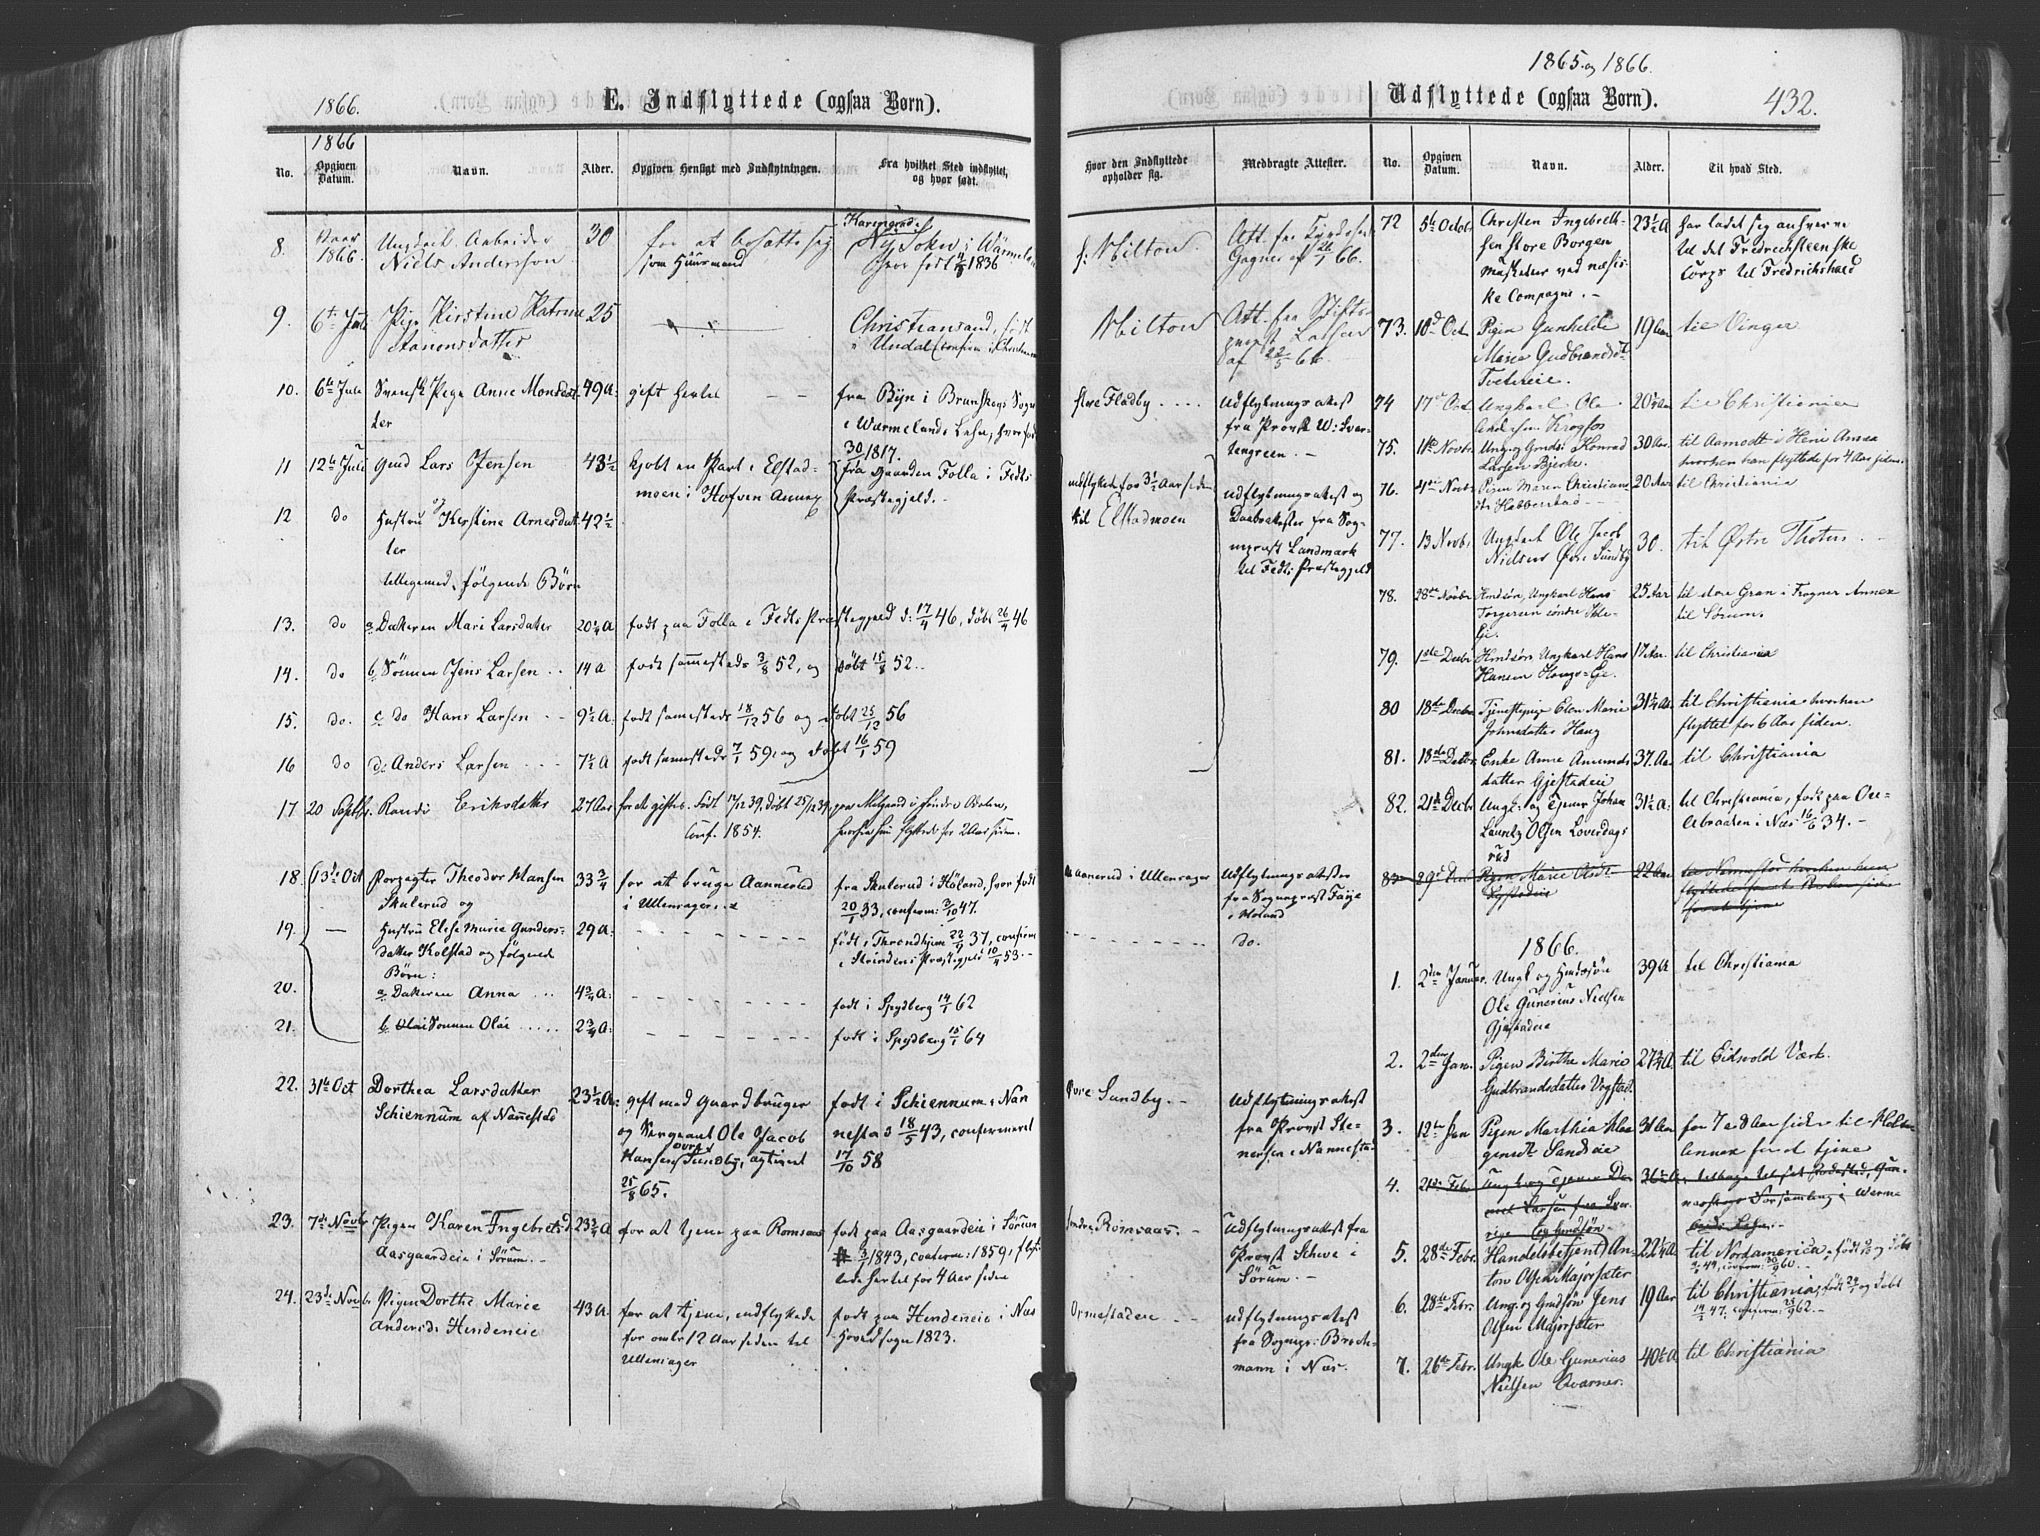 1865 og 1866.
1866.
E. Indflyttede (ogsaa Børn).
Udflyttede (ogsaa Børn).
432.
1866
No.
Opgiven Datum.
Navn.
Alder.
Opgiven Hensigt med Indflytningen.
Fra hvilket Sted indflyttet,
og hvor født.
Hvor den Indflyttede
opholder sig.
Medbragte Attester.
No.
Opgiven Datum.
Navn.
Alder.
Til hvad Sted.
8.
1866.
Ungkarl Arbeider
Niels Andersson
30
for at bosætte sig
som Huusmand
Ny Sokn i Wärmeland
hvor født 1836
Milton
9.
6te Juli
Pige Kirstine Katrine
25
Christiansand, født
i Undal
Milton
10.
6te Juli
Svensk Pige Anne Monsdat-
ter
49 A:
gift hertil
fra Byn i Brunskogs Sogn
i Wærmelands Lehn, hvor født
30/1 1817.
Fladby
Udflytnings attest
fra Provst W:
11
12te Juli
Gmd Lars Jensen
43 1/2
kjøbt en Part i Elstad-
moen i Hofven Annex
fra Gaarden Folla i Fedts
Præstegjeld. -
indflyttet for 3 1/2 Aar siden
til Elstadmoen
udflytnings attest og
Daabsattester fra Sog-
nepræst Landmark
til Fedts Præstegjeld
12
do
og
Hustru Kerstine Arnesdat-
ter
42 1/2
tilligemed følgende Børn
13.
do
a Datteren Mari Larsdatter
20 1/4 A
født paa Folla i Fedts Præstegjeld d: 17/4 46, døbt 26/4 46
14.
do
b Sønnen Jens Larsen
14 A
født sammesteds 3/8 52, og døbt 15/8 52.
15.
do.
c do Hans Larsen
9 1/2 A:
født samesteds 18/12 56 og døbt 25/12 56
16
do
d: Anders Larsen
7 1/2 A
født samesteds 7/1 59, og døbt 16/1 59
17
20 Septbr.
Randi Eriksdatter
27 Aar
for at giftes. Født 17/12 39. Døbt 25/12 39,
Conf. 1854.
paa
hvorhen hun flyttede for 2 Aar siden.
18.
13de Oct
Forpagter Theodor Hansen
Skulerud og
33 3/4
for at bruge Aannerud
i Ullensager. -
fra Skulerud i Høland, hvor født
20/1 33, conferm: 3/10 47.
Aanerud i Ullensager
Udflytnings attester
fra Sognepræst Faye
i Høland
19.
Hustru Else Marie Gunders-
datter Kolstad og følgende
Børn:
29 A:
født i Throndhjem 22/9 37, conferm
i Strindens Præstegjeld 10/4 53. -
do.
20.
a Datteren Anna
4 3/4 A:
født i Spydberg 14/1 62
21.
b Sønnen Olai
2 3/4 A:
født i Spydberg 15/1 64
22.
31te Oct
Dorthea Larsdatter
Schiennum af Nannestad
23 1/2 A:
gift med Gaardbruger
og Sergeant Ole Jacob
Hansen Øvre Sundby, ægtiviet
25/8 65.
født i Schiennum i Nan
nestad 18/5 43, confermeret
17/10 58
Øvre Sundby. -
Udflytnings attest
fra Provst Ste-
nersen i Nannestad
23.
7de Novbr
Pigen Karen Ingebretsd.
Aasgaardeie i Sørum. -
23 3/4 A
for at tjene paa Romsaas
født paa Aasgaardeie i Sørum
3/1 1843, conferm: 1859, flyt-
tede hertil for 4 Aar siden
Romsaas. -
Udflytnings attest fra
Provst Schwe i
Sørum. -
24.
23de Novbr
Pigen Dorthe Marie
Andersd: Hendeneie
43 A.
for at tjene, indflyttede
for omtr 12 Aar siden til
Ullensager
født paa Hendeneie i Næs
Hovedsogn 1823.
Ormestadeie
Udflytnings attest
fra Sognepr: Broch-
mann i Næs.
72
5te Octobr
Christen Ingebret-
sen store Borgen
Musketeer ved næsis-
ke Compagni. -
23 1/2 A
har ladet sig anhverve
til det Fredrichsteenske
Corps til Fredrichshald
73.
10d Oct
Pigen Gunhilde
Maria Gudbrandsd:
Tveterie.
19 Aar
til Vinger
74
17de Oct
Ungkarl Ole
Andersen Krogfos
20 Aar
til Christiania
75.
Novbr
Ung: og Gmds: Konrad
Larsen Bjerke.
30 Aar.
til Aamodt i Heni Annex
hvorhen han flyttede for 4 Aar siden.
76.
Novbr
Pigen Maren Christians-
dtr Habberstad
20 Aar.
til Christiania
77.
13 Novbr
Ungkarl Ole Jacob
Nielsen Øvre Sundby
30.
til Østre Thoten.
78.
28de Novbr
Hmdsøn, Ungkarl Hans
Torgersen
Eje.
25 Aar
til store Gran i Frogner Annex
til Sørum.
79.
1ste Decbr
Hmdsøn Ungkarl Hans
Hansen Hougs-Eje.
17 Aar.
til Christiania
80
18de Decbr
Tjenestepige Olea Marie
Johnsdatter Haug
31 1/4 Aar
til Christiania hvorhen
flyttet for 6 Aar siden.
81.
18de Decbr.
Enke Anne Amunds
datter Gjestadeie
37. Aar
til Christiania
82.
21de Decbr
Ungk: og Tjener Johan
Lauritz Olsen Loverdags
rud
31 1/2 A:
til Christiania, født paa Ove-
Abraaten i Næs 16/6 34. -
83
29d Decb
Pigen Marie
22 Aar
1866.
1.
2den Januar.
Ungk og Hmdssøn
Ole Gunerius Nielsen
Gjestadeie
39 A
til Christiania
2.
2den Jan.
Pigen Birthe Marie
Gudbrandsdatter Vogstad.
27 3/4 A.
til Eidsvold Værk.
3.
12te Jan
Pigen Marthia
Sandeie
31 Aar
for 7 a 8 Aar siden til Holter
Annex for at tjene
4.
21de Feb.
Ungk og Tjener
Larsen fra Sver-
rige
36 1/2 A.
5.
28de Febr.
Handelsbetjent An-
ton Olsen Majorsæter
22 1/4 A
til Nordamerica,
6.
28de Febr.
Ung. og Gmdsøn Jens
Olsen Majorsæter
19 Aar
til Christiania,
7.
26de Febr.
Ungk Ole Gunerius
Nielsen Qværner.
40 1/2 A
til Christiania